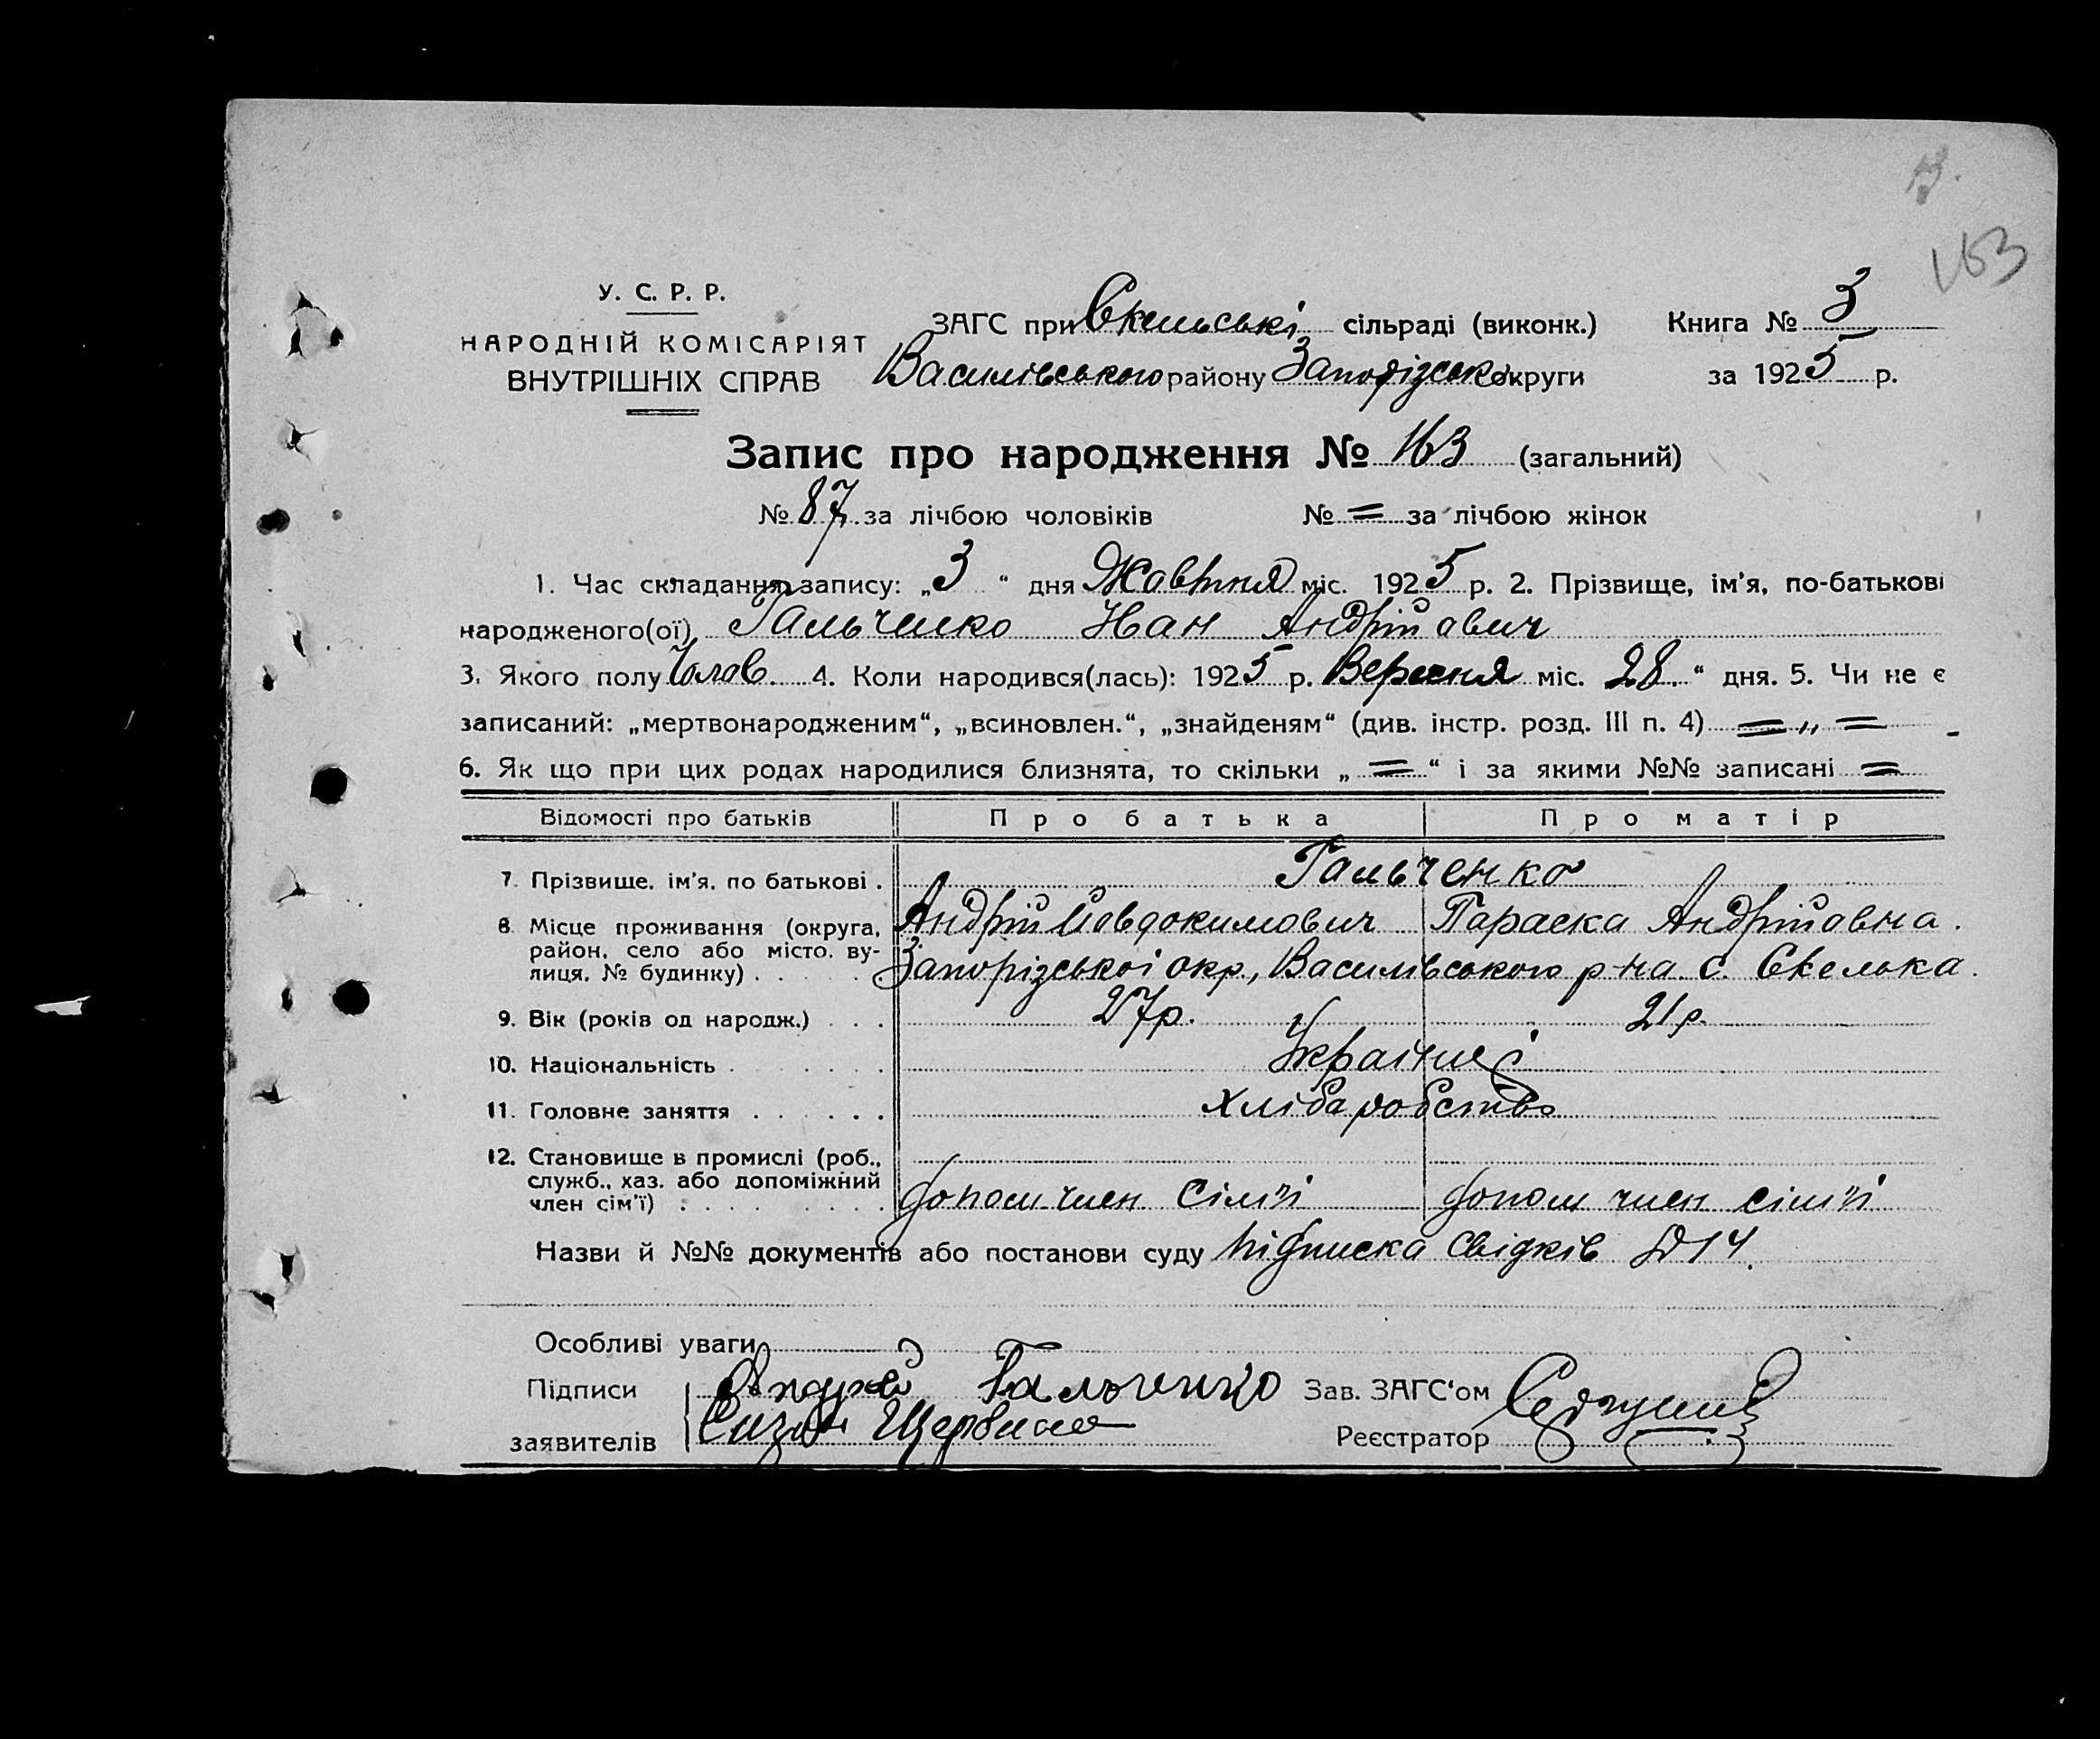 163
У. С. Р. Р.
НАРОДНІЙ КОМІСАРІЯТ
ВНУТРІШНІХ СПРАВ
ЗАГС при Скельські сільраді (виконк.) Книга № 3
Василівського району Запорізсько округи за 1925 р.
Запис про народження № 163 (загальний)
№ 87 за лічбою чоловіків № = за лічбою жінок
1. Час складання запису: „3“ дня Жовтня міс. 1925 р. 2. Прізвище, ім'я, по-батькові
народженого(ої) Гальченко Іван Андрійович
3. Якого полу Чолов. 4. Коли народився(лась): 1925 р. Вересня міс. 28 “ дня. 5. Чи не є
записаний: „мертвонародженим“, „всиновлен.“, „знайденям“ (див. інстр. розд. III п. 4) = „ =
6. Як що при цих родах народилися близнята, то скільки „ = “ і за якими №№ записані =
Відомості про батьків Про батька Про матір
7. Прізвище, ім'я, по батькові . Гальченко
Андрій Йовдокимович Параска Андрійовна.
8. Місце проживання (округа,
район, село або місто, ву-
лиця, № будинку) . . . Запорізської окр., Василівського р-на. с. Скелька.
9. Вік (років од народж.) . . . 27р. 21р.
10. Національність . . . . . . Українці
11. Головне заняття . . . . . . Хліборобство
12. Становище в промислі (роб.,
служб., хаз. або допоміжний
член сім'ї) : . . . . . . допом. член сім'ї допом член сім'ї
Назви й №№ документів або постанови суду підписка свідків №14.
Особливі уваги
Підписи Андрей Гальченко Зав. ЗАГС'ом
заявителів Щербина Реєстратор